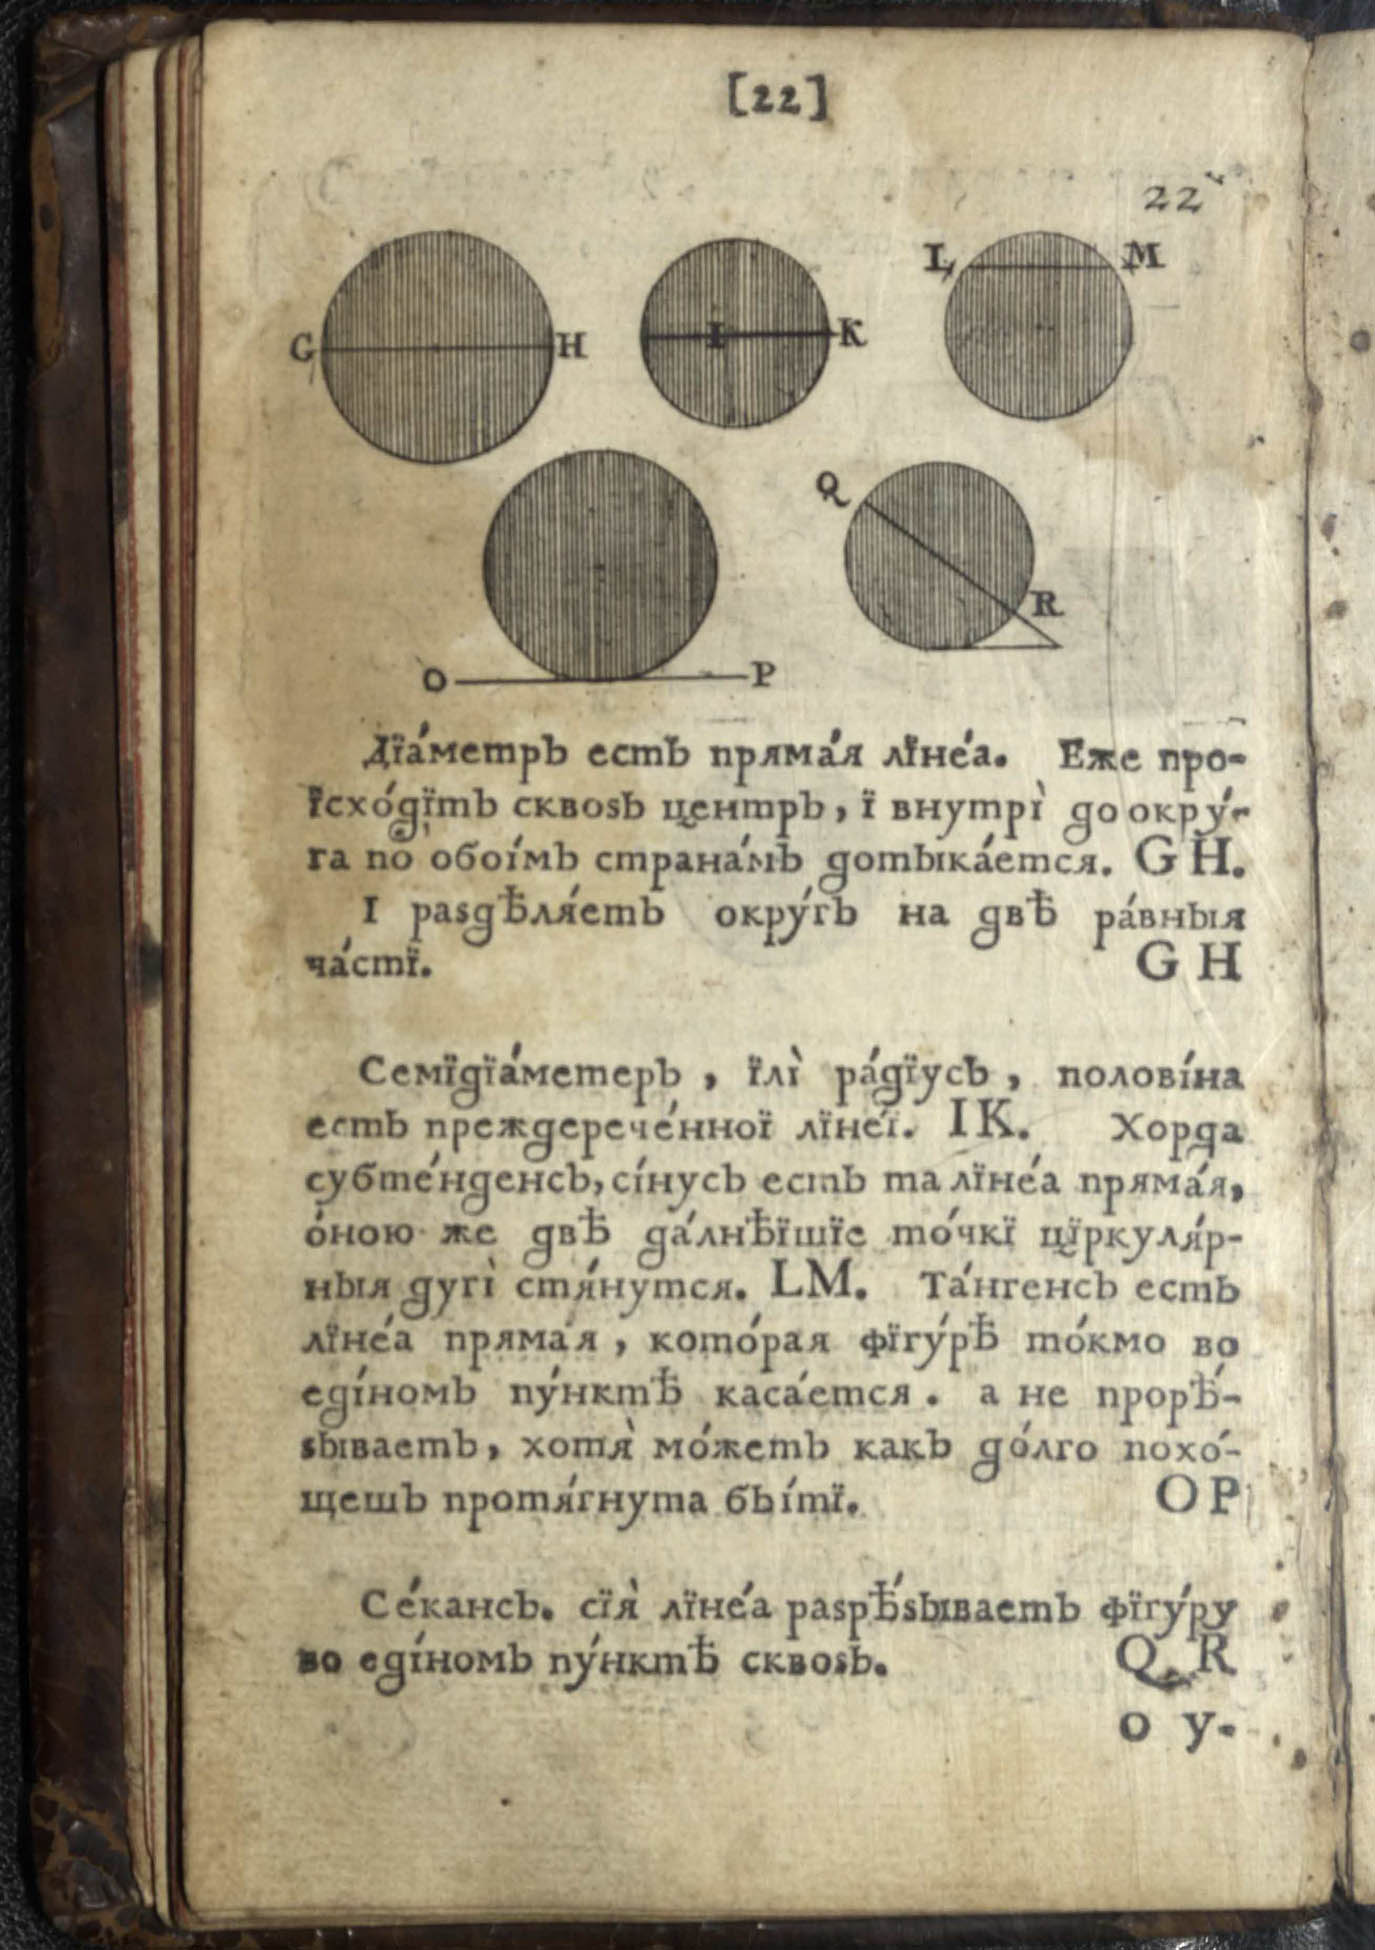 [22]
22
G H I K L M
O P Q R
Дїа́метръ есть прямая́ лїне́а. Еже про-
їсхо́дїтъ сквоѕь центръ, ї внутрі̀ до окру́-
га по обоі́мъ страна́мъ дотыка́ется. G H.
І раѕдѣля́етъ окру́гъ на двѣ ра́вныя
ча́стї. G H
Семїдїа́метеръ, їлі̀ ра́дїусъ, полові́на
есть преждерече́нної лїне́ї. I K. Хорда
субте́нденсъ, сі́нусъ есть та лїне́а прямая́,
о́ною же двѣ да́лнѣїшїе то́чкї цїркуля́р-
ныя дугі̀ стя́нутся. LM. Та́нгенсъ есть
лїне́а прямая́, кото́рая фїгу́рѣ то́кмо во
еді́номъ пу́нктѣ каса́ется. а не прорѣ́-
ѕываетъ, хотя̀ мо́жетъ какъ до́лго похо́-
щешь протя́гнута бы́тї. O P
Се́кансъ. сїя̀ лїне́а раѕрѣ́ѕываетъ фїгу́ру
во еді́номъ пу́нктѣ сквоѕь. Q R
о у-